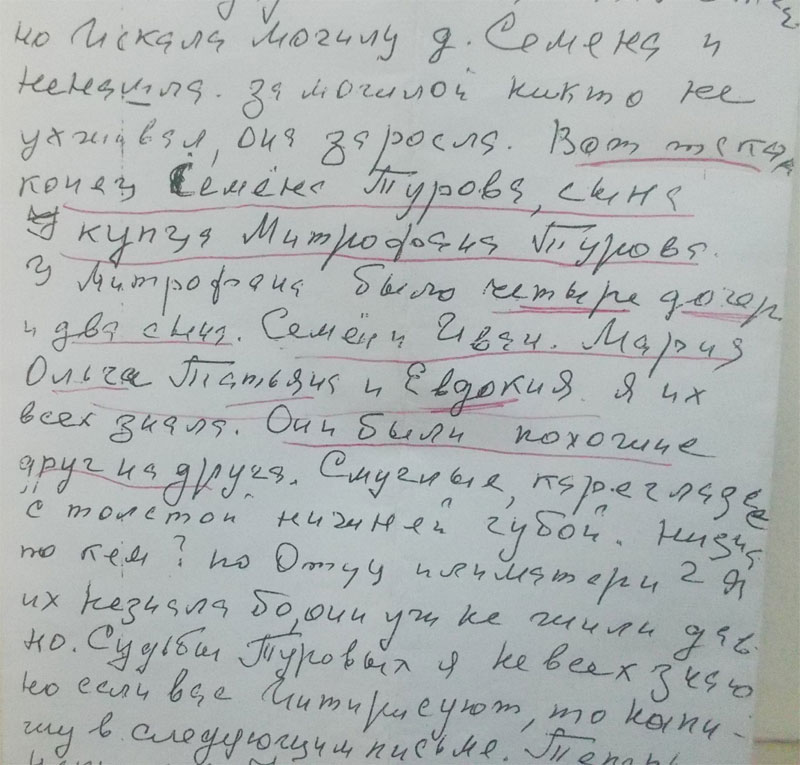 но Искала могилу д. Семена и
ненашла. за могилой никто не
ухживал, она заросла. Вот такая
конец Семёна Турова, сына
купца Митрофана Турова.
У Митрофана было четыре дочер
и два сына. Семён и Иван. Мария
Ольга Татьяна и Евдокия. я их
всех знала. Они были похожие
друг на друга. Смуглые, карегладые
с толстой нижней губой.
по кем? по Отцу илиматери? Я
их незнала бо, они уж не жили дав-
но. Судьбы Туровых я не всех знаю
но если вас Интирисуют, то напи-
шу в следующим письме. Теперь